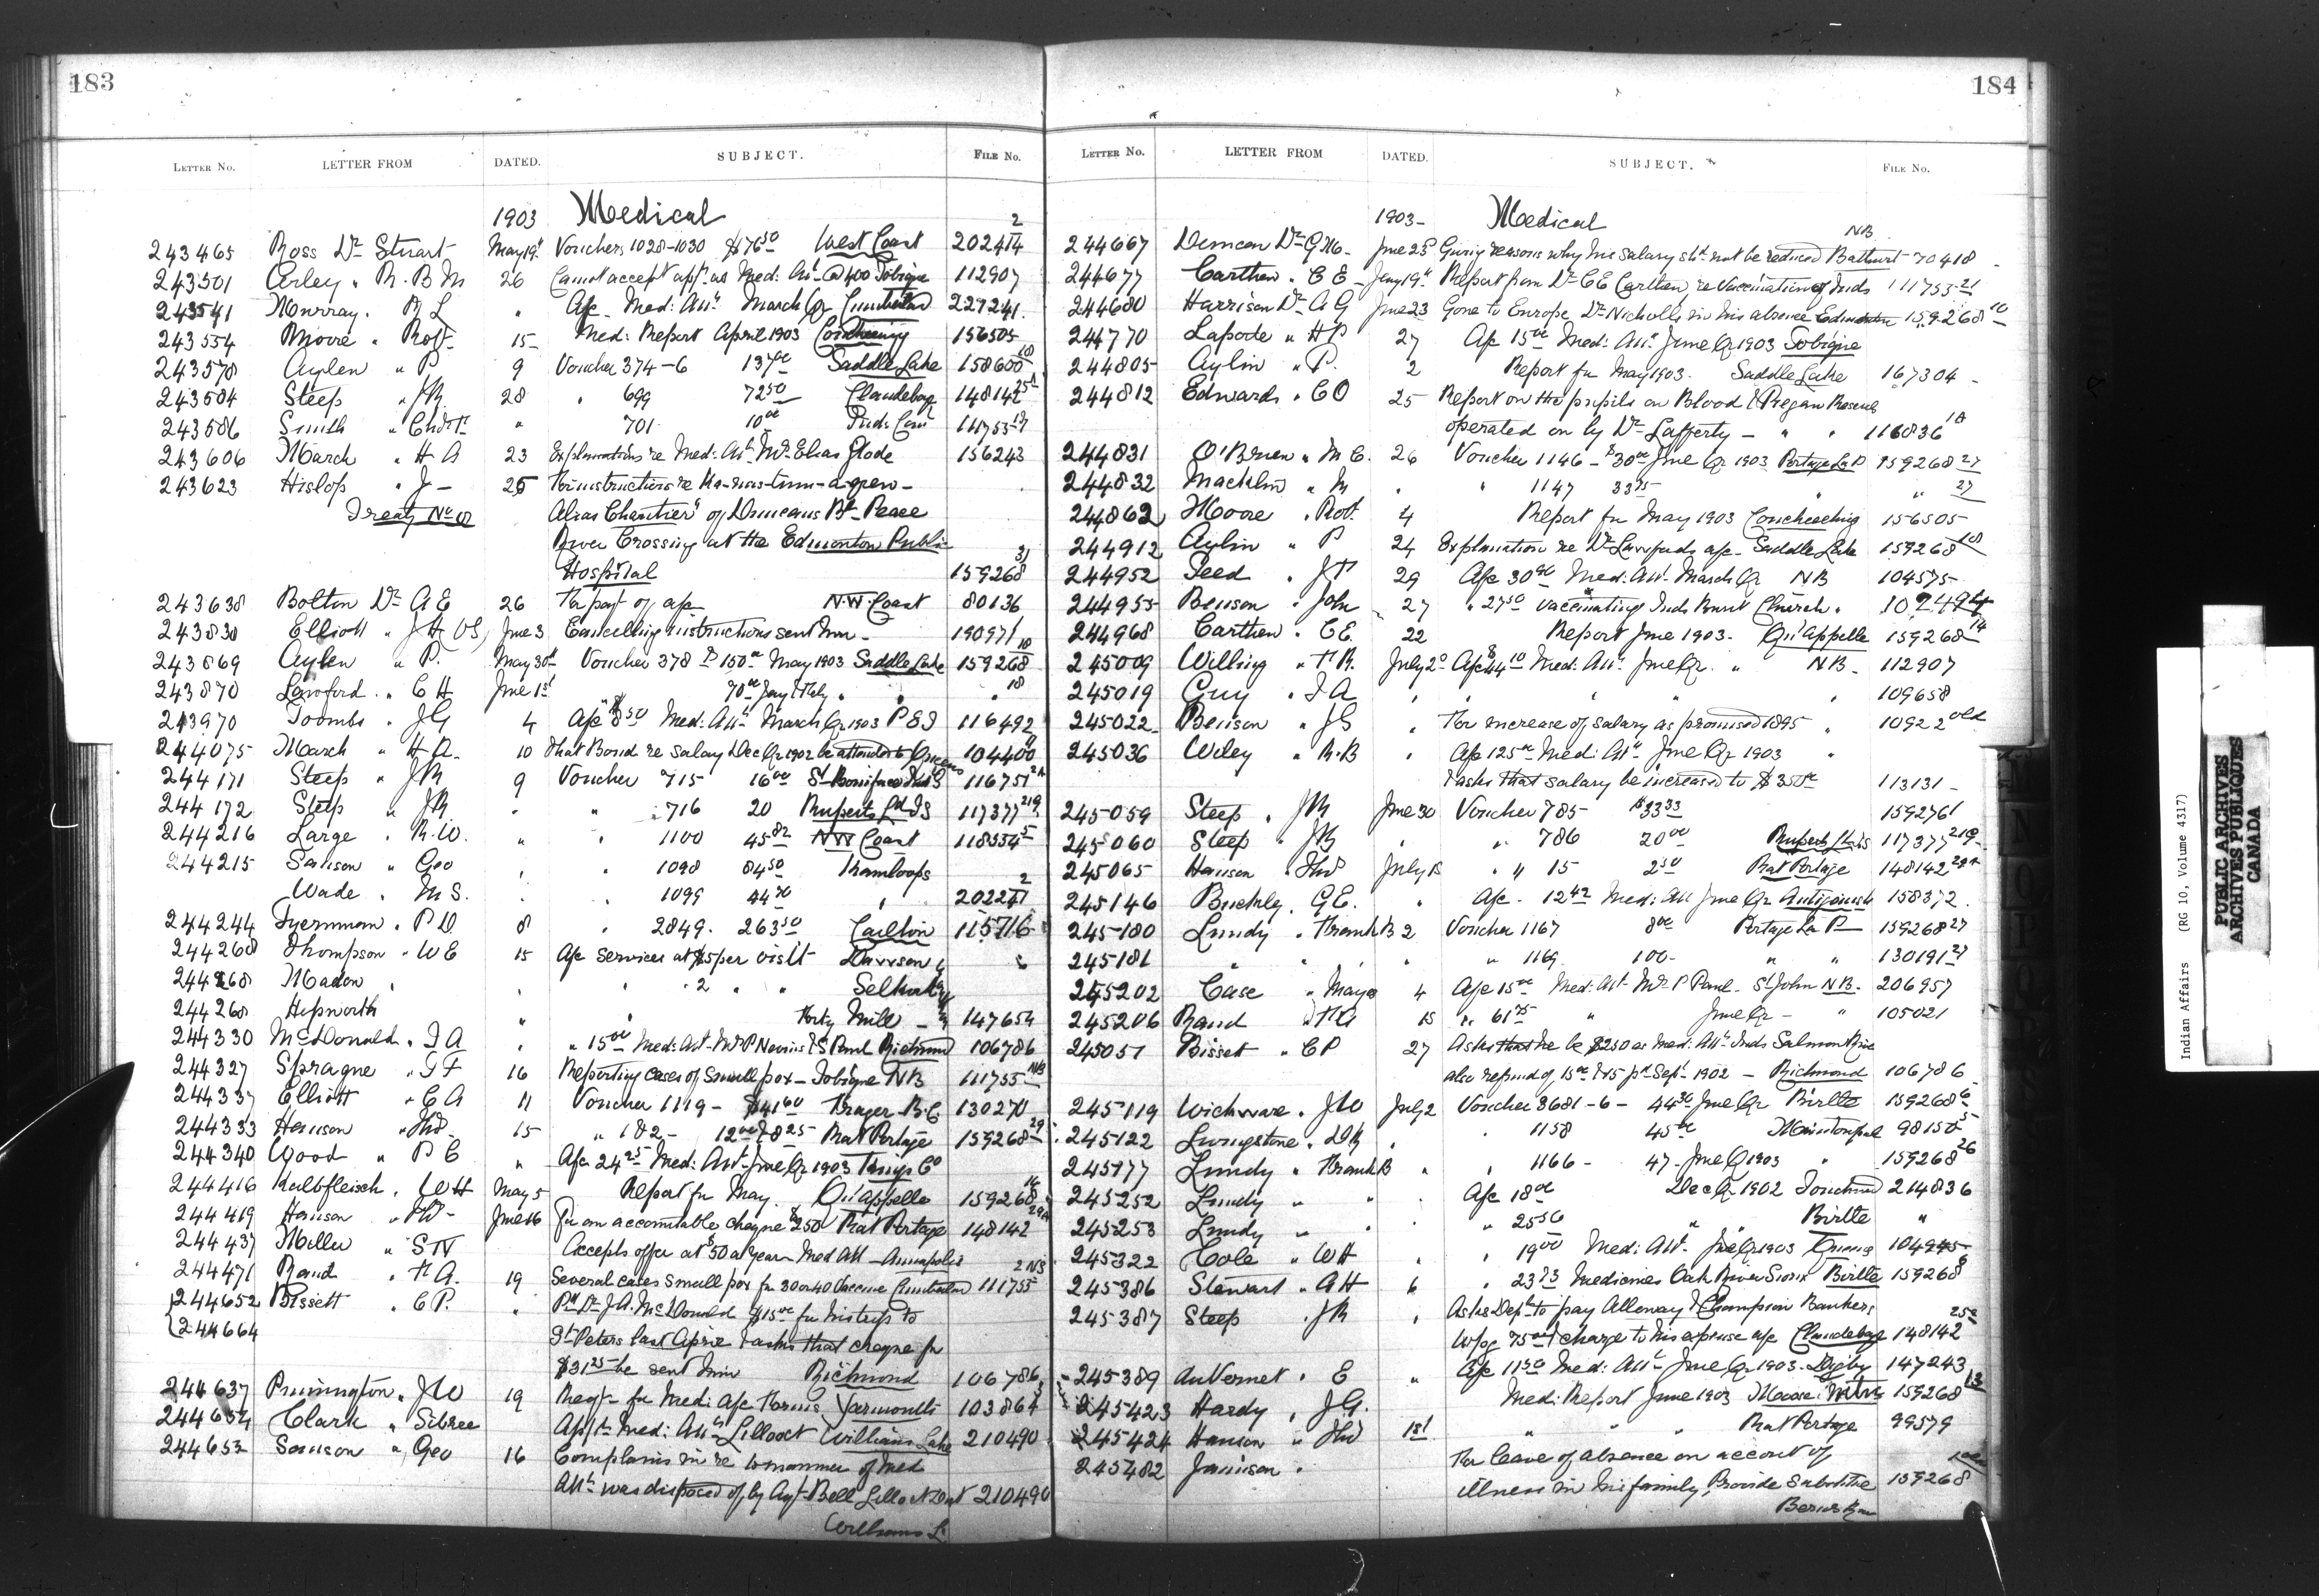 183
LETTER No. LETTER FROM DATED. SUBJECT. FILE No.
1903 Medical 2
243465 Ross Dr Stuart May 19th Vouchers 1028-1030 $176 50 West Coast 202414
243501 " R. B M 26 Cannot accept appt as Med: Att @ 400 Tobique 112907
243541 Murray. R L " A/c Med: Attn March Qr Cumberland 227241.
243554 Moore " Robt 15 Med: Report April 1903 Couchiching 156505
243578 Aylen " P 9 Voucher 374-6 137 00 Saddle Lake 158600 18
243584 Steep " JR 28 " 699 72 50 Clandeboye 148142 25
243586 Smith " " 701 10 00 Inds
243606 March " H A 23 Explanations re Med: Att Mr Elias Glode 156243
243623 Hislop " J - 25 For instructions re
Treaty No 8 Alias "Chantier" of Duncans Bd Peace
River Crossing at the Edmonton Public
Hospital 159268 31
243638 Bolton Dr A E 26 For payt of a/c N.W. Coast 80136
243830 Elliott " J H VS, June 3 Cancelling instructions sent him - 190971
243869 Aylen " P. May 30th Voucher 378 $150 00 May 1903 Saddle Lake 159268 18
243870 Lawford " C H June 1st " 70 00 Jany & Feby " " " 18
243970 Toombs " JG 4 A/c $8 50 Med: Attn March Qr 1903 P E I 116492
244075 March " H A. 10 that Bond re salary Dec Qr 1902 be attended to Queens 104400
244171 Steep " JR 9 Voucher 715 16 00 St Boniface Ind S 116751 2A
244172 Steep " JR " " 716 20 Ruperts Ld I S 117377 219
244216 Large " R. W. " " 1100 45 82 NW Coast 118554 5
244215 Sanson " Geo " " 1098 84 50 Kamloops 2
Wade " M S. " 1099 44 70 " 202271
244244 Tyerman " P D 8 " 2849. 263 50 Carlton 115716
244268 Thompson " W E 15 A/c services at $5 per visit Dawson
244268 Madon " " 2 " " Selkirk
244268 Hepworth " Forty Mile - 147654
244330 McDonald " J A " " 15 00 Med: Att Mr P Nevins & S Paul Richmond 106786
244327 Sprague " T F 16 Reporting cases of small pox - Tobique NB 111755 NB
244337 Elliott " E A 11 Voucher 1119 - $41 60 Frazer B.C. 130270
244333 Hanson " Thos 15 " 1 & 2 - 12 00 & 8 25 Rat Portage 159268 29
244340 Wood " P C " A/c 24 25 Med: Att June Qr 1903 Kings Co
244416 Kalbfleisch " W H May 5 Report for May Qu'Appelle 159268 16
244419 Hanson " Thos - June 16 For an accountable cheque $250 Rat Portage 148142 29A
244437 Miller " S N Accepts offer at $50 a year Med Att - Annapolis
244471 Rand " F A. 19 Several cases small pox for 30 or 40 Vaccine Cumberland 111755 2 NS
244652 Bissett " C P. " Pd Dr J A. McDonald $15 00 for his trip to
244664 St Peters last April & asks that cheque for
$31 25 be sent him Richmond 106786
244637 Purrington " J W 19 Reqst - for Med: A/c Forms Yarmouth 103864
244654 Clark " Sibree Appt Med: Attn Lillooet Williams Lake 210490
244653 Sanson " Geo 16 Complains in re to manner of Med
Attn was disposed of by Agt Bell Lillooet 210490
Williams L.
184
LETTER No. LETTER FROM DATED. SUBJECT. FILE No.
1903- Medical
NB
244667 Duncan Dr G M - June 25 Giving reasons why his salary shd not be reduced Bathurst 70418
244677 Carthew " C E - Jany 19th Report from Dr C E Carthew re Vaccination of Inds 111753 21
244680 Harrison Dr A G June 23 Gone to Europe Dr Nicholls in his absence Edmonton 159268 10
244770 Laporte " H P 27 A/c 15 00 Med: Attn June Qr 1903 Tobique
244805 Aylin " P. 2 Report for May 1903. Saddle Lake 167304
244812 Edwards " C O 25 Report on the pupils on Blood & Piegan Reserves
operated on by Dr Lafferty - " " 116836 1A
244831 O'Brien " M C. 26 Voucher 1146 - $30 00 June Qr 1903 Portage La P 159268 27
244832 Macklin " M " " 1147 33 75 " " 27
244862 Moore " Robt. 4 Report for May 1903 Couchiching 156505
244912 Aylin " P 24 Explanation re Dr Lawfords a/c - Saddle Lake 159268 18
244952 Peed " J T 29 A/c 30 90 Med: Att March Qr NB 104575
244955 Benson " John 27 " 27 50 Vaccinating Inds Burnt Church " 102494
244968 Carthew " C E. 22 Report June 1903. Qu'Appelle 159268 14
245009 Willing " T R. July 2 A/c $44 10 Med: Att June Qr. " NB - 112907
245019 Guy " J A " " " " " 109658
245022 Benson " J S " For increase of salary as promised 1895 " 10922 old
245036 Wiley " R. B " A/c 125 00 Med: Attn June Qr 1903 "
& asks that salary be increased to $350 00 113131
245059 Steep " JR June 30 Voucher 785 $33 33 1592761
245060 Steep " JR " " 786 20 00 Ruperts Ld I S 117377 219
245065 Hanson Thos July 15 " " 15 2 50 Rat Portage 148142 29A
245146 Buckley. G E. " A/c - 12 42 Med: Att June Qr Antigonish 158372.
245180 Lundy " Frank B 2 Voucher 1167 8 00 Portage La P 159268 27
245181 " " " " " 1169 100 - " " 130191 27
245202 Case " Mayes 4 A/c 15 00 Med: Att Mr P Paul - St John NB. 206957
245206 Rand " F A 15 " 61 75 " June Qr - " 105021
245051 Bissett " C P 27 Asks that he be $250 as Med: Attn Inds Salmon River
also refund of 15 00 & 15 pd Sept 1902 - Richmond 106786
245119 Wickware " J W July 2 Voucher 3681-6 - 44 36 June Qr Birtle 159268 6
245122 Livingstone " D R " " 1158 45 00 98150
245177 Lundy " Frank B " " 1166 - 47 - June Qr 1903 " 159268 26
245252 Lundy " " " A/c 18 00 Dec Qr 1902 214836
245253 Lundy " " " " 25 50 " " Birtle "
245322 Cole " W H " 19 00 Med: Att. June Qr 1903 Queens 104945
245386 Stewart " A H 6 " 23 73 Medicines Oak River Sioux Birtle 159268 6
245387 Steep " JR " Asks Dept to pay Alloway & Champion Bankers
Wpg 75 00 & charge to his expense a/c Clandeboye 148142 25
245389 AuVernet " E " A/c 11 50 Med: Attn - June Qr 1903. Digby 147243
245423 Hardy " J G. Med: Report June 1903 Moose Mtn 159268 13
245424 Hanson " Thos 1st " " Rat Portage 99579
245482 Jamison " For leave of absence on account of
illness in his family, Provide Substitute 159268
PUBLIC ARCHIVES
ARCHIVES PUBLIQUES
CANADA
Indian Affairs (RG 10, Volume 4317)